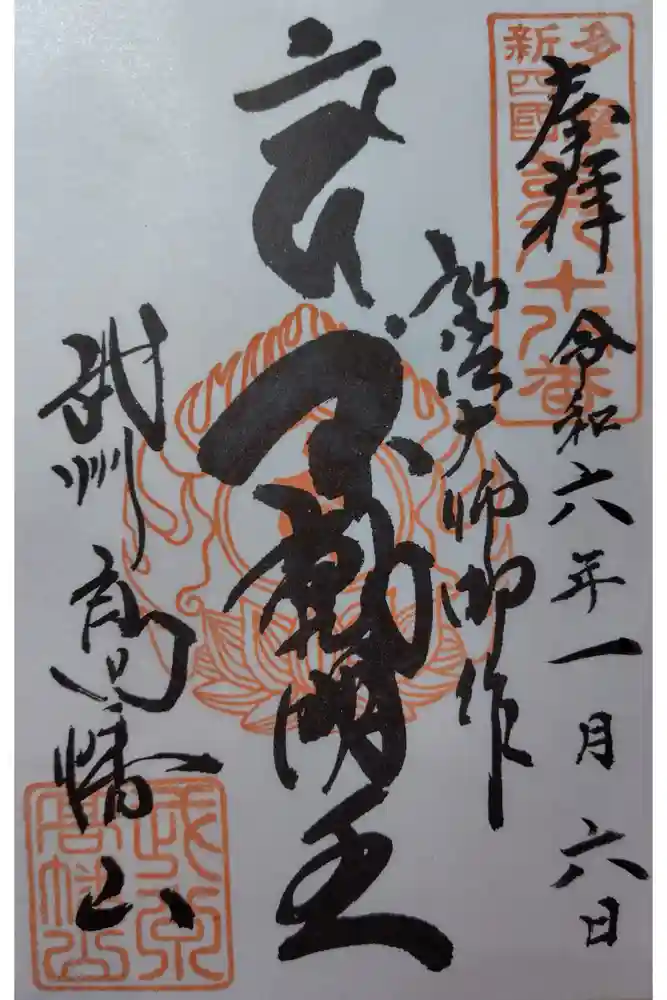 多摩
新四國
第八十八番
奉拝
令和六年一月六日
弘法大師御作
不動明王
武州 高幡山
武州
高幡山